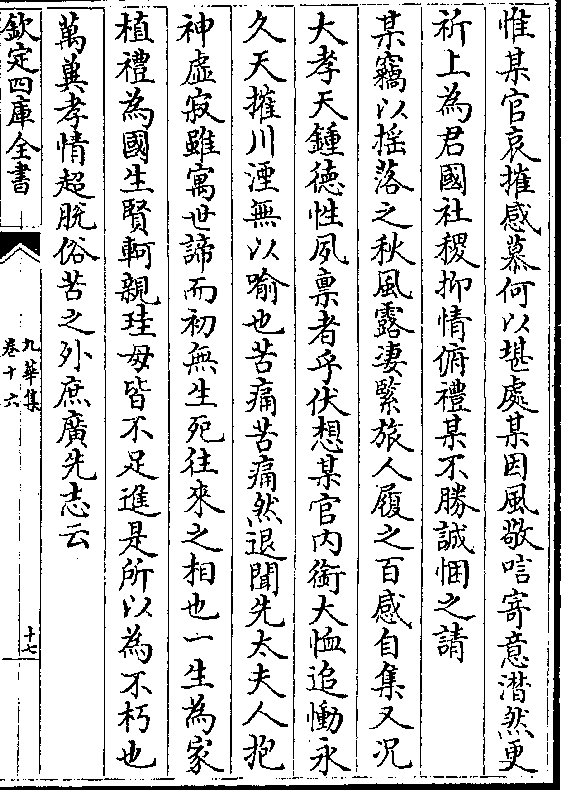 惟某官哀摧感慕何以堪處某因風敬唁寄意潸然更
祈上為君國社稷抑情俯禮某不勝誠悃之請
某竊以揺落之秋風露凄緊旅人履之百感自集又况
大孝天鍾徳性夙禀者乎伏想某官内銜大恤追慟永
久天摧川湮無以喻也苦痛苦痛然退聞先太夫人抱
神虚寂雖寓世諦而初無生死往來之相也一生為家
植禮為國生賢軻親珪母皆不足進是所以為不朽也
萬兾孝情超脱俗苦之外庶廣先志云
欽定四庫全書
九華集
卷十六
十七